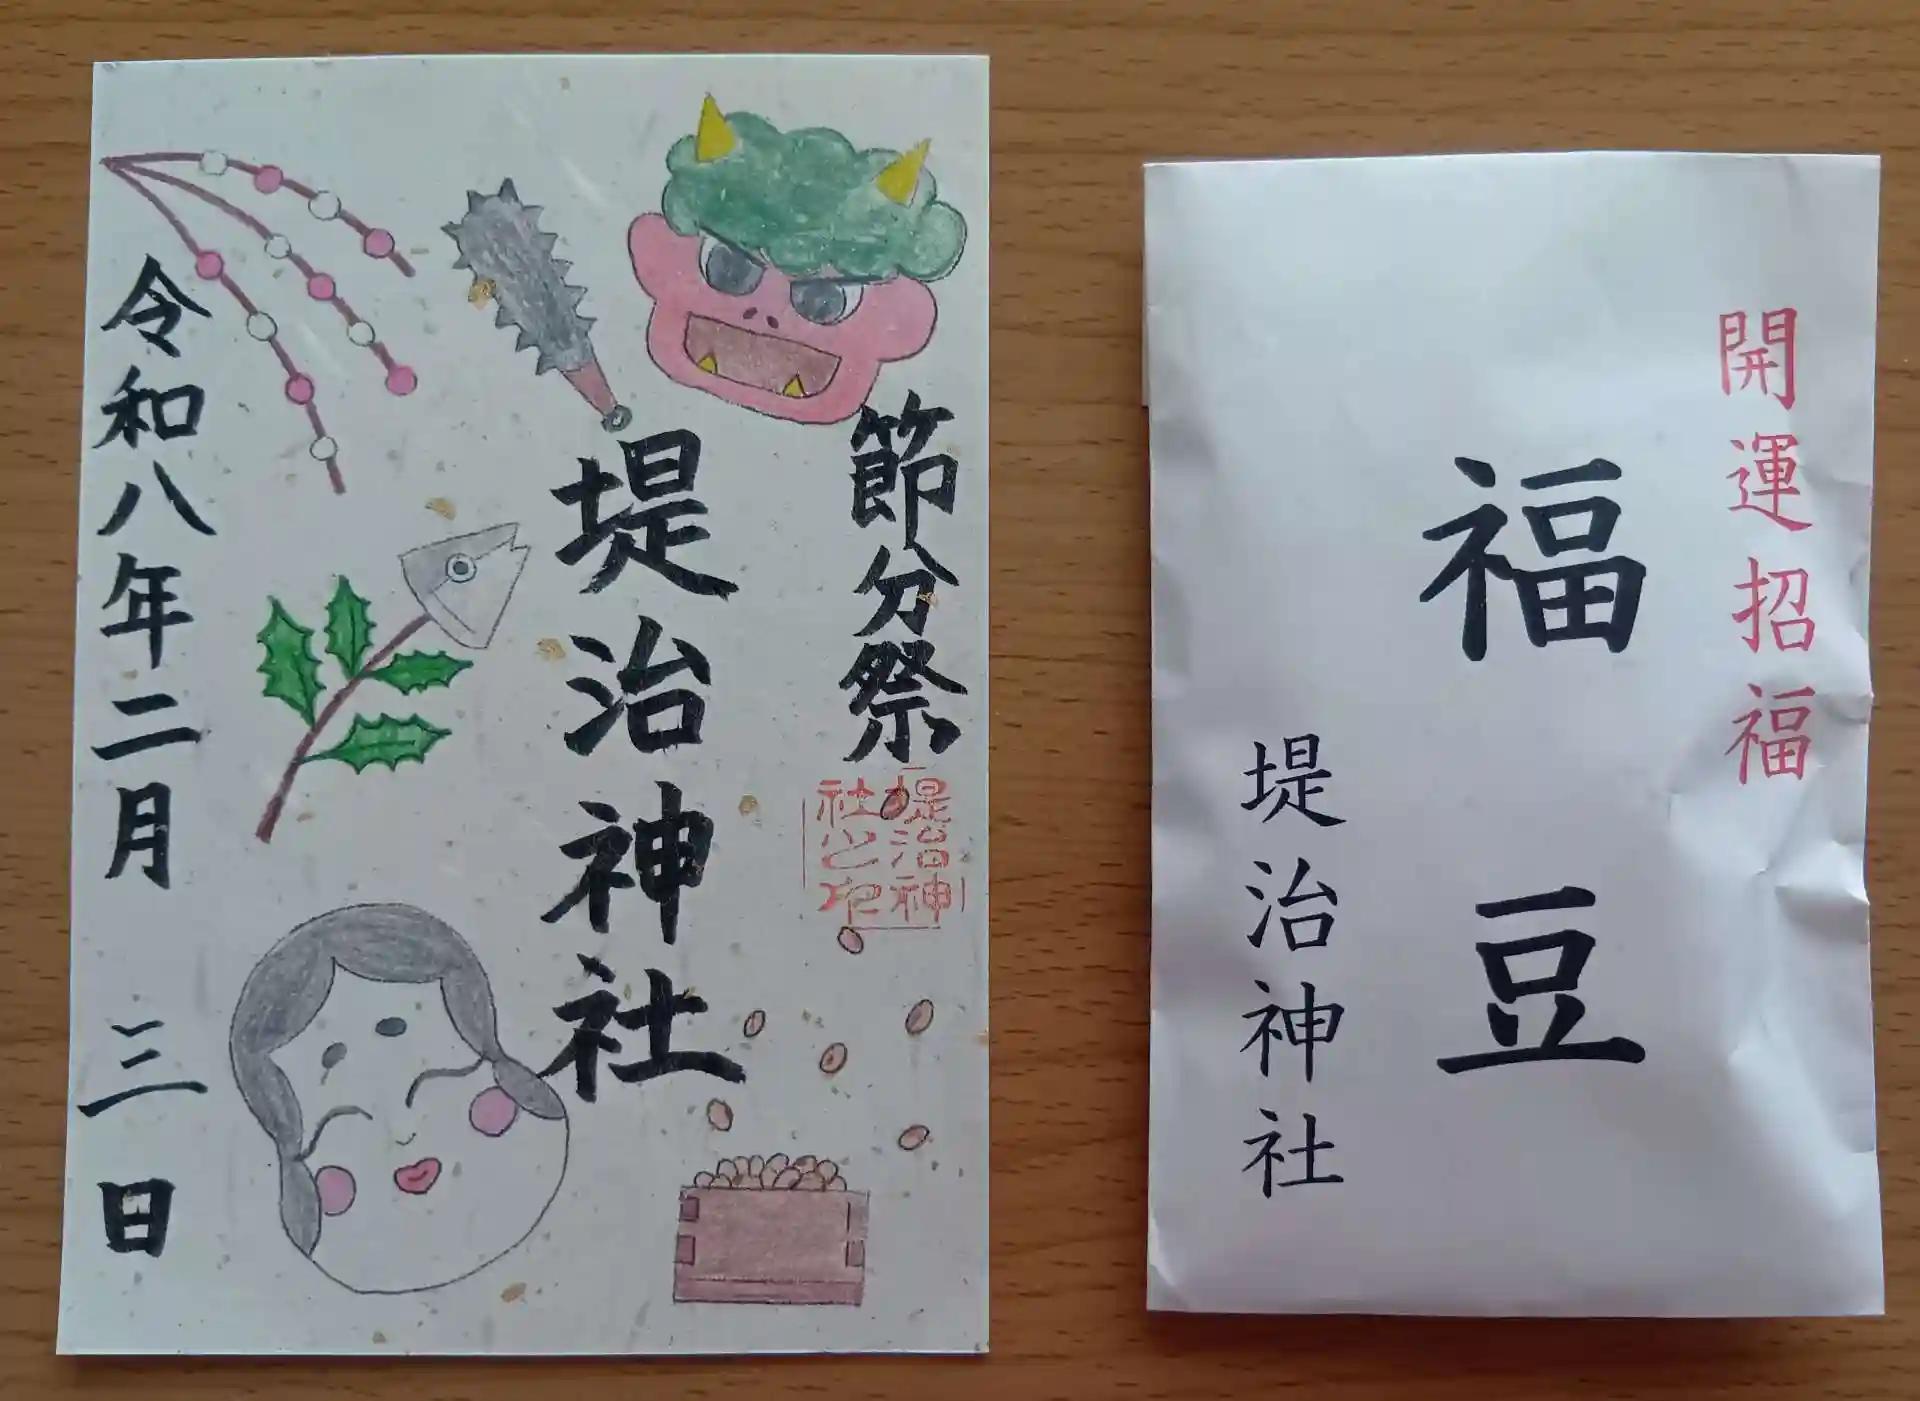 節分祭
堤治神社
堤治神
社之印
令和八年二月三日
開運招福
福豆
堤治神社